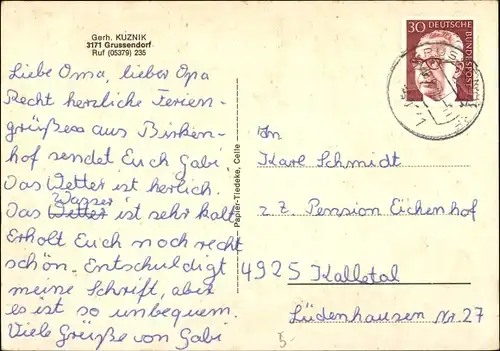 Gerh. KUZNIK
3171 Grussendorf
Ruf (05379) 235
Liebe Oma, lieber Opa
Recht herzliche Ferien-
grüßess aus Birken-
hof sendet Euch Gabi.
Das Wetter ist herlich.
Wasser
Das Wetter ist sehr kalt
Erholt Euch noch recht
schön. Entschuldigt
meine Schrift, aber
es ist so unbequem.
Viele Grüße von Gabi
Papier-Tiedeke, Celle
30
DEUTSCHE
BUNDESPOST
An
Karl Schmidt
z. Z. Pension Eichenhof
4925 Kalletal
Lüdenhausen Nr. 27
5-